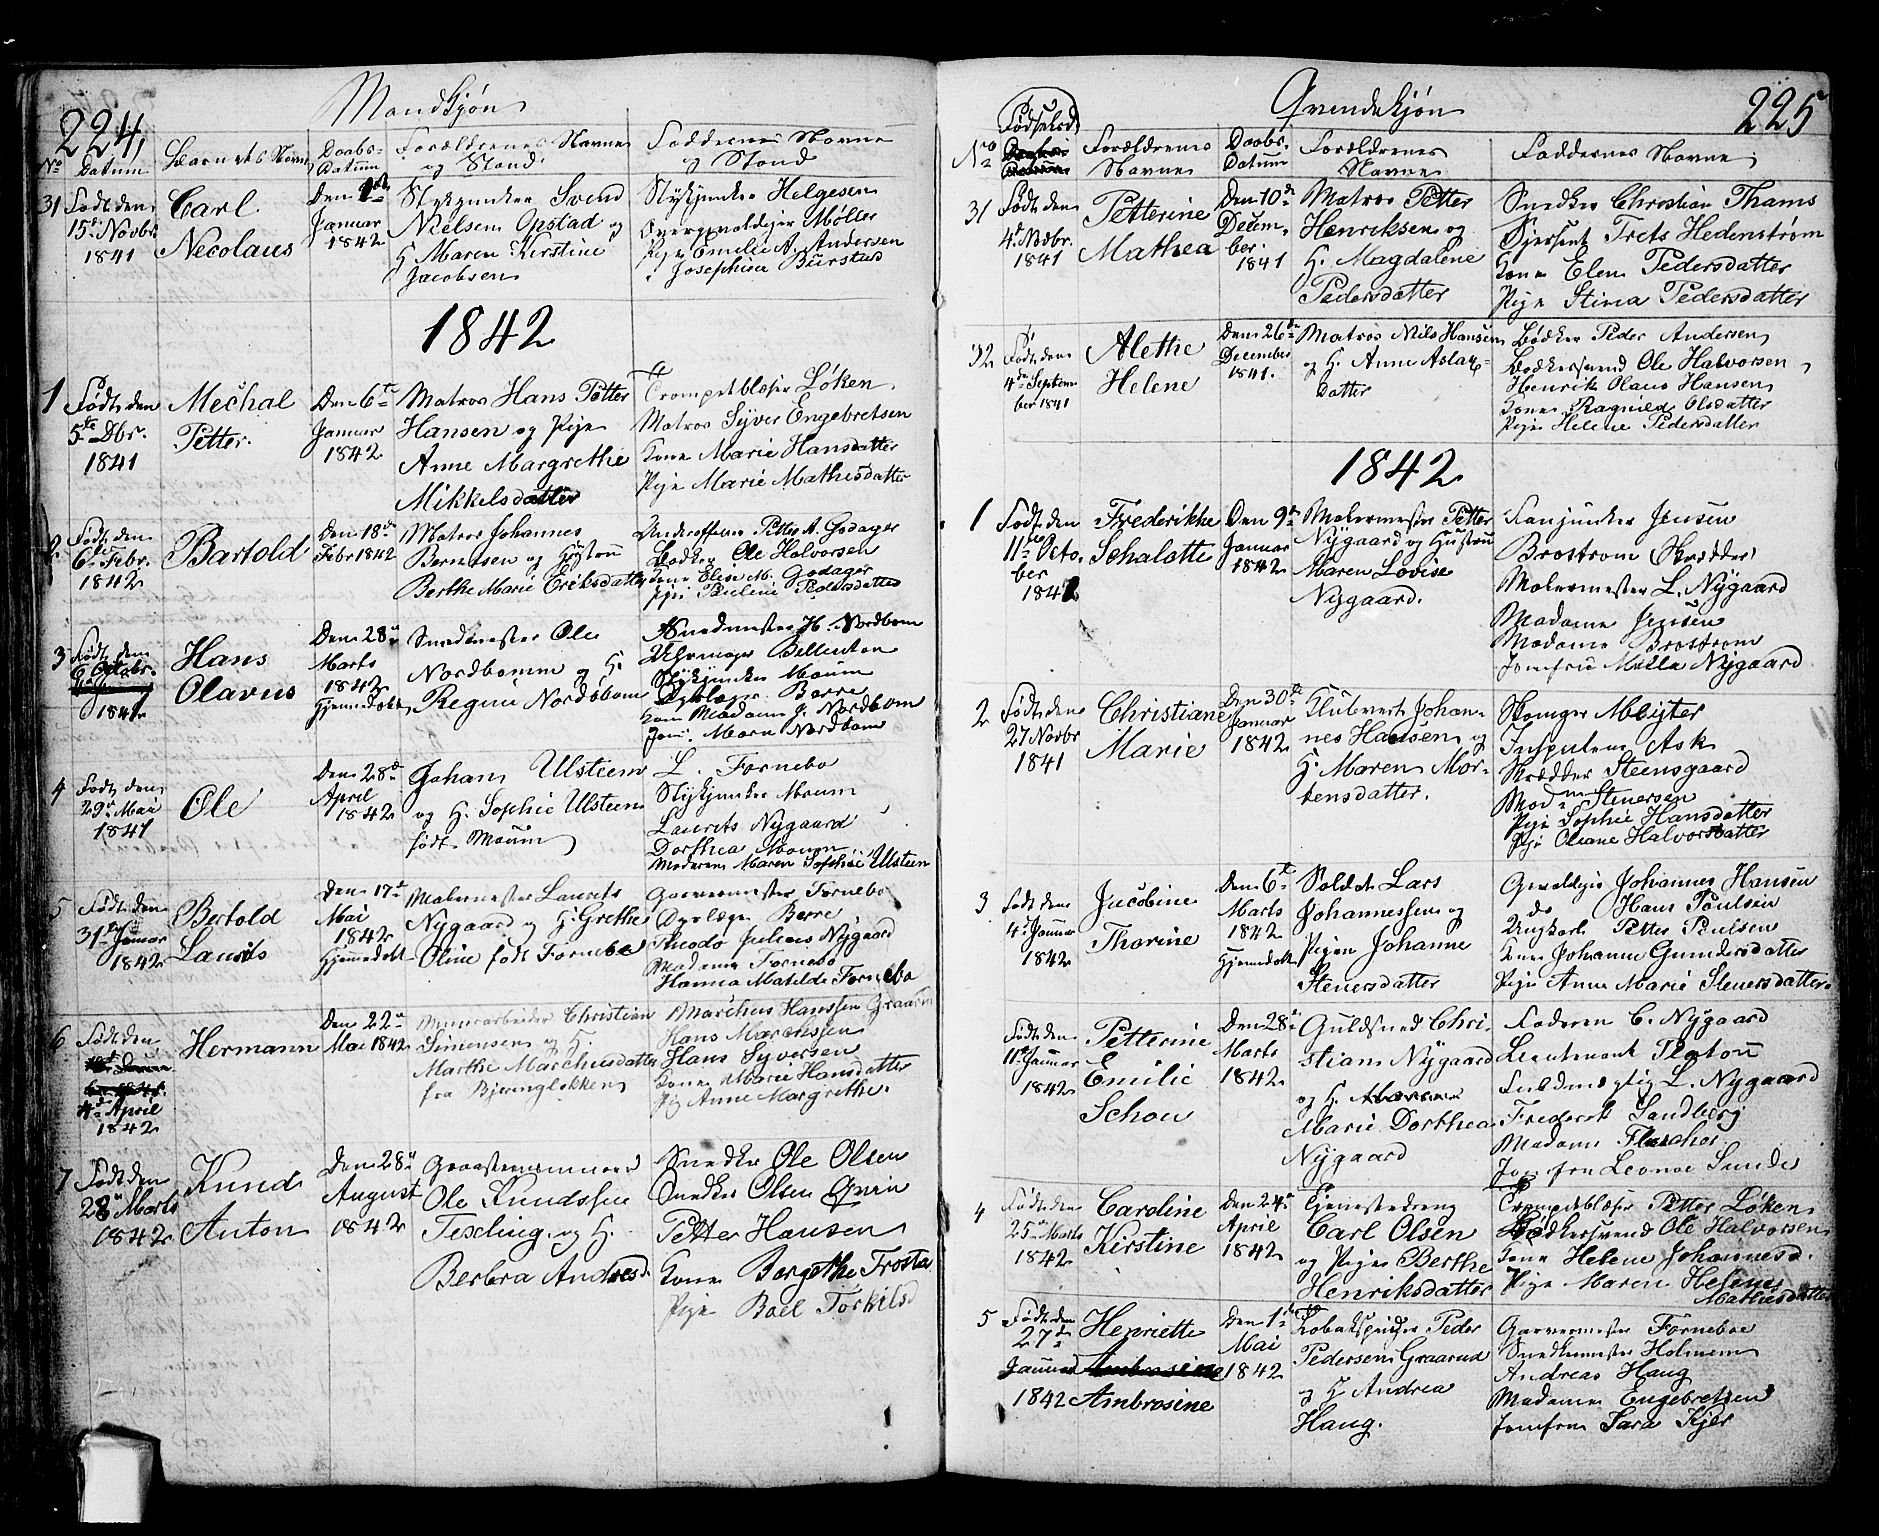 224
Mandkjøn
No Datum
Barnets Navn
Daabs-
Datum
Forældrenes Navne
og Stand
Faddernes Navne
og Stand
31
Født den
15de Novbr.
1841
Carl
Necolaus
Den
Januar
1842
Stykjunker Svend
Nielsen Opstad og
H. Maren Kirstine
Jacobsen
Stykjunker Helgesen
Møller
Pige Emilie A. Andersen
Josephine Burstud
1842
1
Født den
5te Dbr.
1841
Mechal
Petter
Den 6te
Januar
1842
Matros Hans Petter
Hansen og Pige
Anne Margrethe
Mikkelsdatter
Trompetblæser Løken
Matros Syver Engebretsen
Kone Marie Hansdatter
Pige Marie Mathisdatter
2
Født den
6te Febr.
1842
Bartold
Den 18de
Febr 1842
Matros Johannes
Berntsen og Hustru
Berthe Marie Eriksdatter
Underofficer Petter A. Godager
Bødker Ole Halvorsen
Kone Elise M. Godager
Pige Pauline Pedersdatter
3
Født den
6 Octobr.
1841
Hans
Olavus
Den 28de
Marts
1842
Hjemmedøbt
Snedkmester Ole
Nordbomm og H.
Regine Nordbom
Snedmester H. Nordbom
Uhrmager Bellenton
Stykjunker Moum
Dyrlæge Borre
Kone Madame J. Nordbom
Jomf. Maren Nordbom
4
Født den
29de Mai
1841
Ole
Den 28de
April
1842
Johan Ulsteen
og H. Sophie Ulsteen
født Moum
L. Fornebo
Stykjunker Moum
Laurits Nygaard
Dorthea Moum
Moderen Maren Sophie Ulsteen
5
Født den
31te Januar
1842
Bertold
Laurits
Den 17de
Mai
1842
Hjemmedøbt
Malermester Laurits
Nygaard og H. Grethe
Oline født Fornebo
Garvermester Fornebo
Dyrlæge Berre
Theodor Julius Nygaard
Madame Fornebo
Hanna Matilde Fornebo
6
Født den
4de April
1842
Hermann
Den 22de
Mai 1842
Minerarbeider Christian
Simensen og H.
Marthe Marchusdatter
fra Bjerringløkken
Marchus Hanssen Graarud
Hans Marcussen
Hans Syversen
Kone Marie Hansdatter
Pig Anne Margrethe
7
Født den
28de Marts
1842
Knud
Anton
Den 28de
August
1842
Graastensminerer
Ole Knudssen
Texling og H.
Berbra Andresd.
Snedker Ole Olsen
Snedker Olsen Qvin
Petter Hansen
Kone Bergethe Frosta
Pige Boel Torkilsd
225
Qvindekjøn
No
Fødselsd.
Forældrenes
Navne
Daabs.
Datum
Forældrenes
Navne
Faddernes Navne
31
Født den
4de Novbr.
1841
Petterine
Mathea
Den 10de
Decem-
ber
1841
Matros Petter
Henriksen og
H. Magdalene
Pedersdatter
Snedker Christian Thams
Sjersent Frets Hedenstrøm
Kone Elen Pedersdatter
Pige Stina Pedersdatter
32
Født den
4de Septem-
ber 1841
Alethe
Helene
Den 26de
December
1841.
Matros Nils Hansen
og H. Anne Aslak-
datter
Bødker Peder Andersen
Bødkersvend Ole Halvorsen
Henrik Olaus Hansen
Kone Ragnild Olsdatter
Pige Helene Pedersdatter
1842
1
Født den
11te Octo-
ber
1841
Frederikke
Schalotte
Den 9de
Januar
1842
Malermester Petter
Nygaard og Hustru
Maren Lovise
Nygaard.
Fanjunker Jensen
Brostrom Skrædder
Malermester L. Nygaard
Madame Jensen
Madame Brostrom
Jomfrue Milla Nygaard
2
Født den
27 Novbr
1841
Christiane
Marie
Den 30te
Januar
1842
Klutvert Johan-
nes Hansen og
H. Maren Mor-
tensdatter.
Skomager Meijter
Inspulens Ask
Skrædder Steensgaard
Madm Stenersen
Pige Sophie Hansdatter
Pige Oliane Halvorsdatter
3
Født den
4de Januar
1842
Jacobine
Thorine
Den 6te
Marts
1842
Hjemmedøbt
Soldat Lars
Johannessen og
Pigen Johanne
Stenersdatter
Gevaldiger Johannes Hansen
do Hans Poulsen
Ungkarl Petter Poulsen
Kone Johanne Gundersdatter
Pige Anne Marie Stenersdatter.
Født den
11te Januar
1842
Petterine
Emilie
Schou
Den 28de
Marts
1842
Guldsmed Chri-
stian Nygaard
og H.
Marie Dorthea
Nygaard
Faderen C. Nygaard
Lieutenant Platou
Fuldmægtig L. Nygaard
Frederik Sandberg
Madame Flinchor
Jomfru Leonore Sunde
4
Født den
25de Marts
1842
Caroline
Kirstine
Den 24de
April
1842
Tjenestedreng
Carl Olsen
og Pigen Berthe
Henriksdatter
Trompetblæser Petter Løken
Bødkersvend Ole Halvorsen
Kone Helene Johannesd.
Pige Maren Helene
Mathisdatter
5
Født den
27de
Januar
1842
Henriette
Ambrosine
Den 1te
Mai
1842
Tobakspinder Peder
Pedersen Graarud
og H Andrea
Haug.
Garvermester Forneboe
Snedkermester Holmen
Andreas Haug
Madame Engebretsen
Jomfrue Sara Kjær